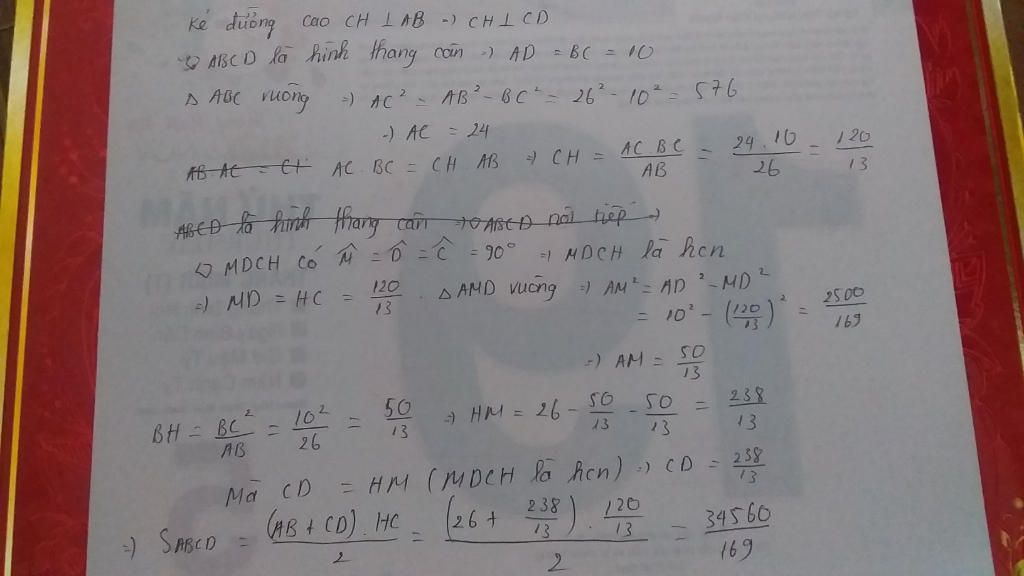 Kẻ đường cao CH ⊥ AB => CH ⊥ CD
◇ ABCD là hình thang cân => AD = BC = 10
△ ABC vuông => AC² = AB² - BC² = 26² - 10² = 576
=> AC = 24
AB.AC = CH AC.BC = CH.AB => CH = AC.BC/AB = 24.10/26 = 120/13
ABCD là hình thang cân => ◇ABCD nội tiếp =>
◇ MDCH có M̂ = D̂ = Ĉ = 90° => MDCH là hcn
=> MD = HC = 120/13 . △ AMD vuông => AM² = AD² - MD²
= 10² - (120/13)² = 2500/169
=> AM = 50/13
BH = BC²/AB = 10²/26 = 50/13 => HM = 26 - 50/13 - 50/13 = 238/13
Mà CD = HM (MDCH là hcn) => CD = 238/13
=> SABCD = (AB + CD).HC/2 = (26 + 238/13).120/13/2 = 34560/169